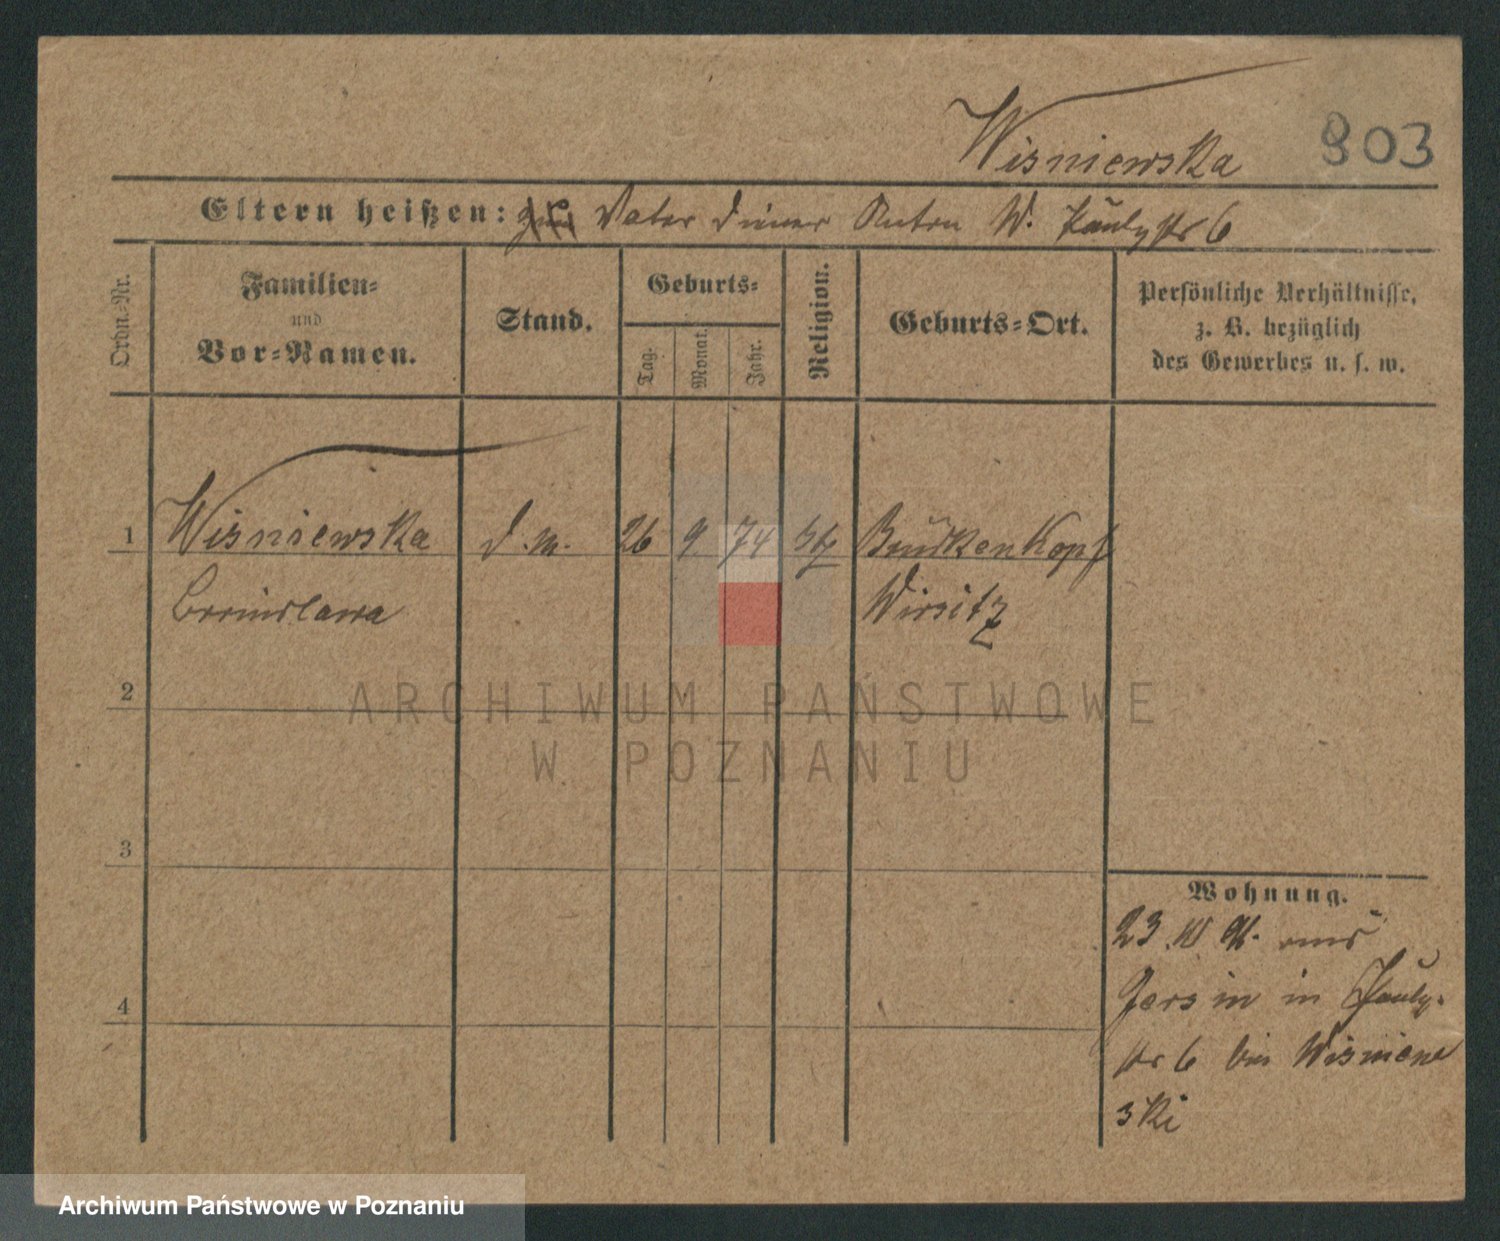 Wisniewska 803
Eltern heißen: Vater Diener Anton W. Paulystr 6
Ordn.-Nr.
Familien-
und
Vor-Namen.
Stand.
Geburts-
Tag.
Monat.
Jahr.
Religion.
Geburts-Ort.
Persönliche Verhältnisse,
z. B. bezüglich
des Gewerbes u. s. w.
1 Wisniewska d.m. 26 9 74 Brückenkopf
Bronislawa Wirsitz
2
3
4
Wohnung.
23. aus
in Pauly-
str 6 bei Wisniew
ski
ARCHIWUM PAŃSTWOWE
W POZNANIU
Archiwum Państwowe w Poznaniu